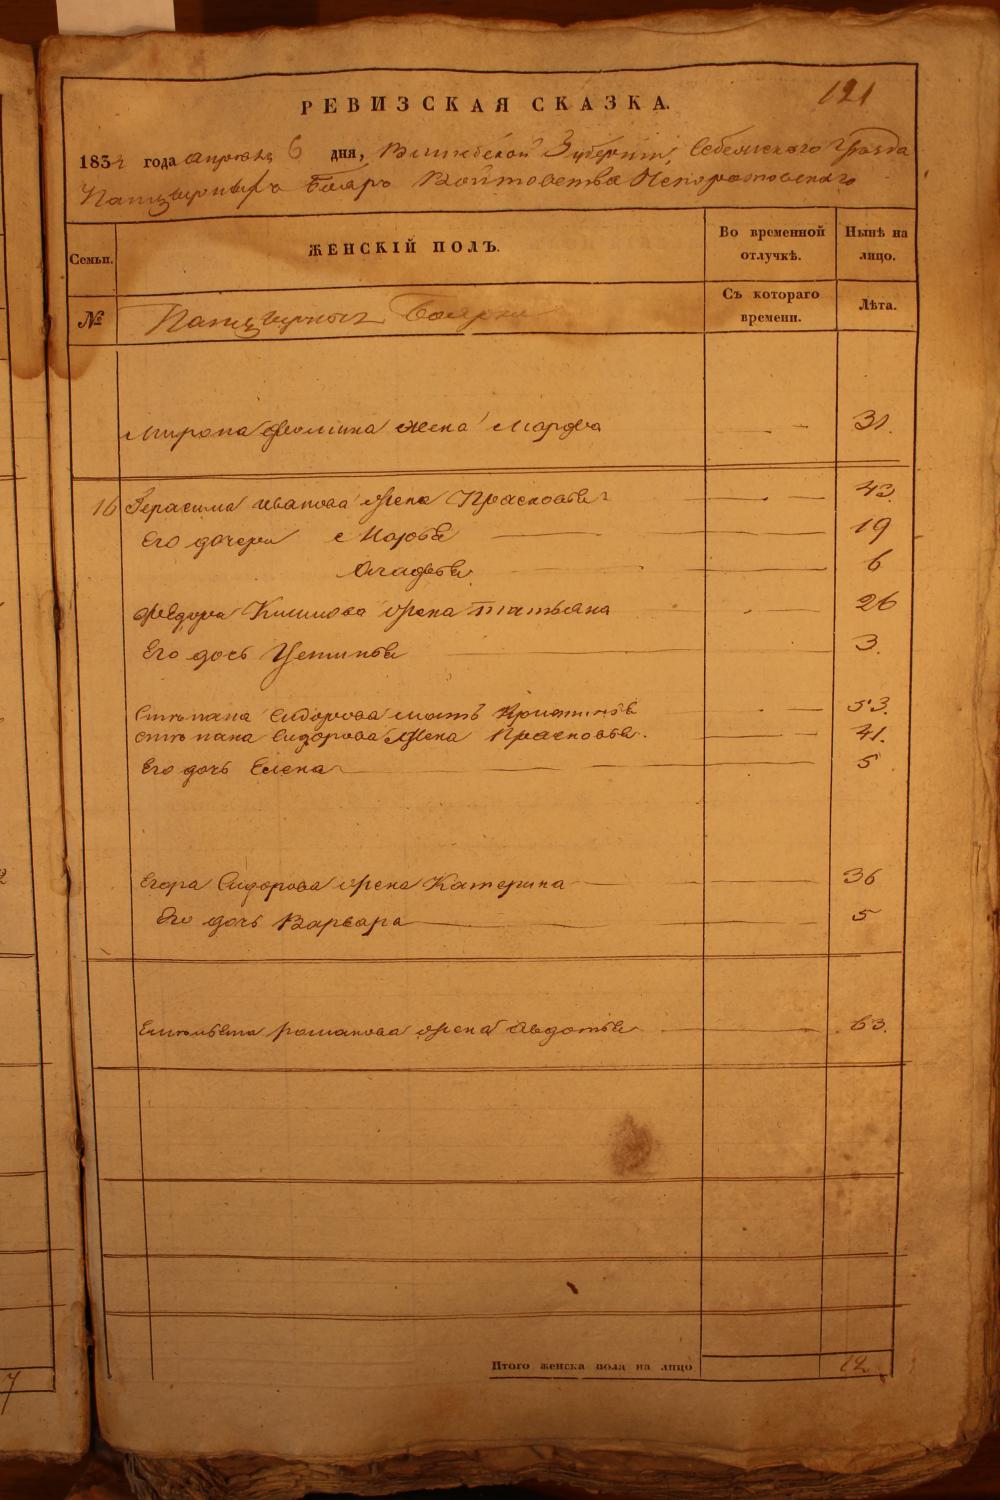 121
РЕВИЗСКАЯ СКАЗКА.
1834 года апреля 6 дня, Витебской Губернии, Себежскаго Уезда
Панцырныхъ Бояръ Войтовства Непоротовскаго
Семьи. ЖЕНСКІЙ ПОЛЪ. Во временной отлучкѣ. Нынѣ на лицо.
№ Панцырныхъ Боярки Съ котораго времени. Лѣта.
Мирона Фомина жена Марфа 31.
16 Герасима Иванова жена Прасковья 43.
Его дочери Марья 19
Агафья 6
Федора Климова жена Татьяна 26
Его дочь Устинья 3.
Степана Сидорова мать 53.
Степана Сидорова жена Прасковья. 41.
Его дочь Елена 5
Егора Сидорова жена Катерина 36
Его дочь Варвара 5
романова жена Авдотья 63.
Итого женска пола на лицо 12
7